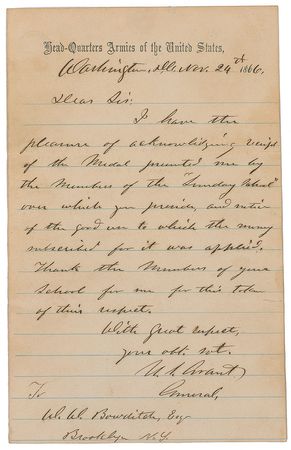 Head-Quarters Armies of the United States,
Washington, D.C. Nov. 24th 1866.
Dear Sir:
I have the
pleasure of acknowledging receipt
of the Medal presented me by
the Members of the "Sunday School"
over which you preside, and notice
of the good use to which the money
subscribed for it was applied.
Thank the Members of your
School for me for this token
of their respect.
With great respect,
your obt. svt.
U. S. Grant
General,
To
W. W. Bowditch, Esq
Brooklyn N.Y.